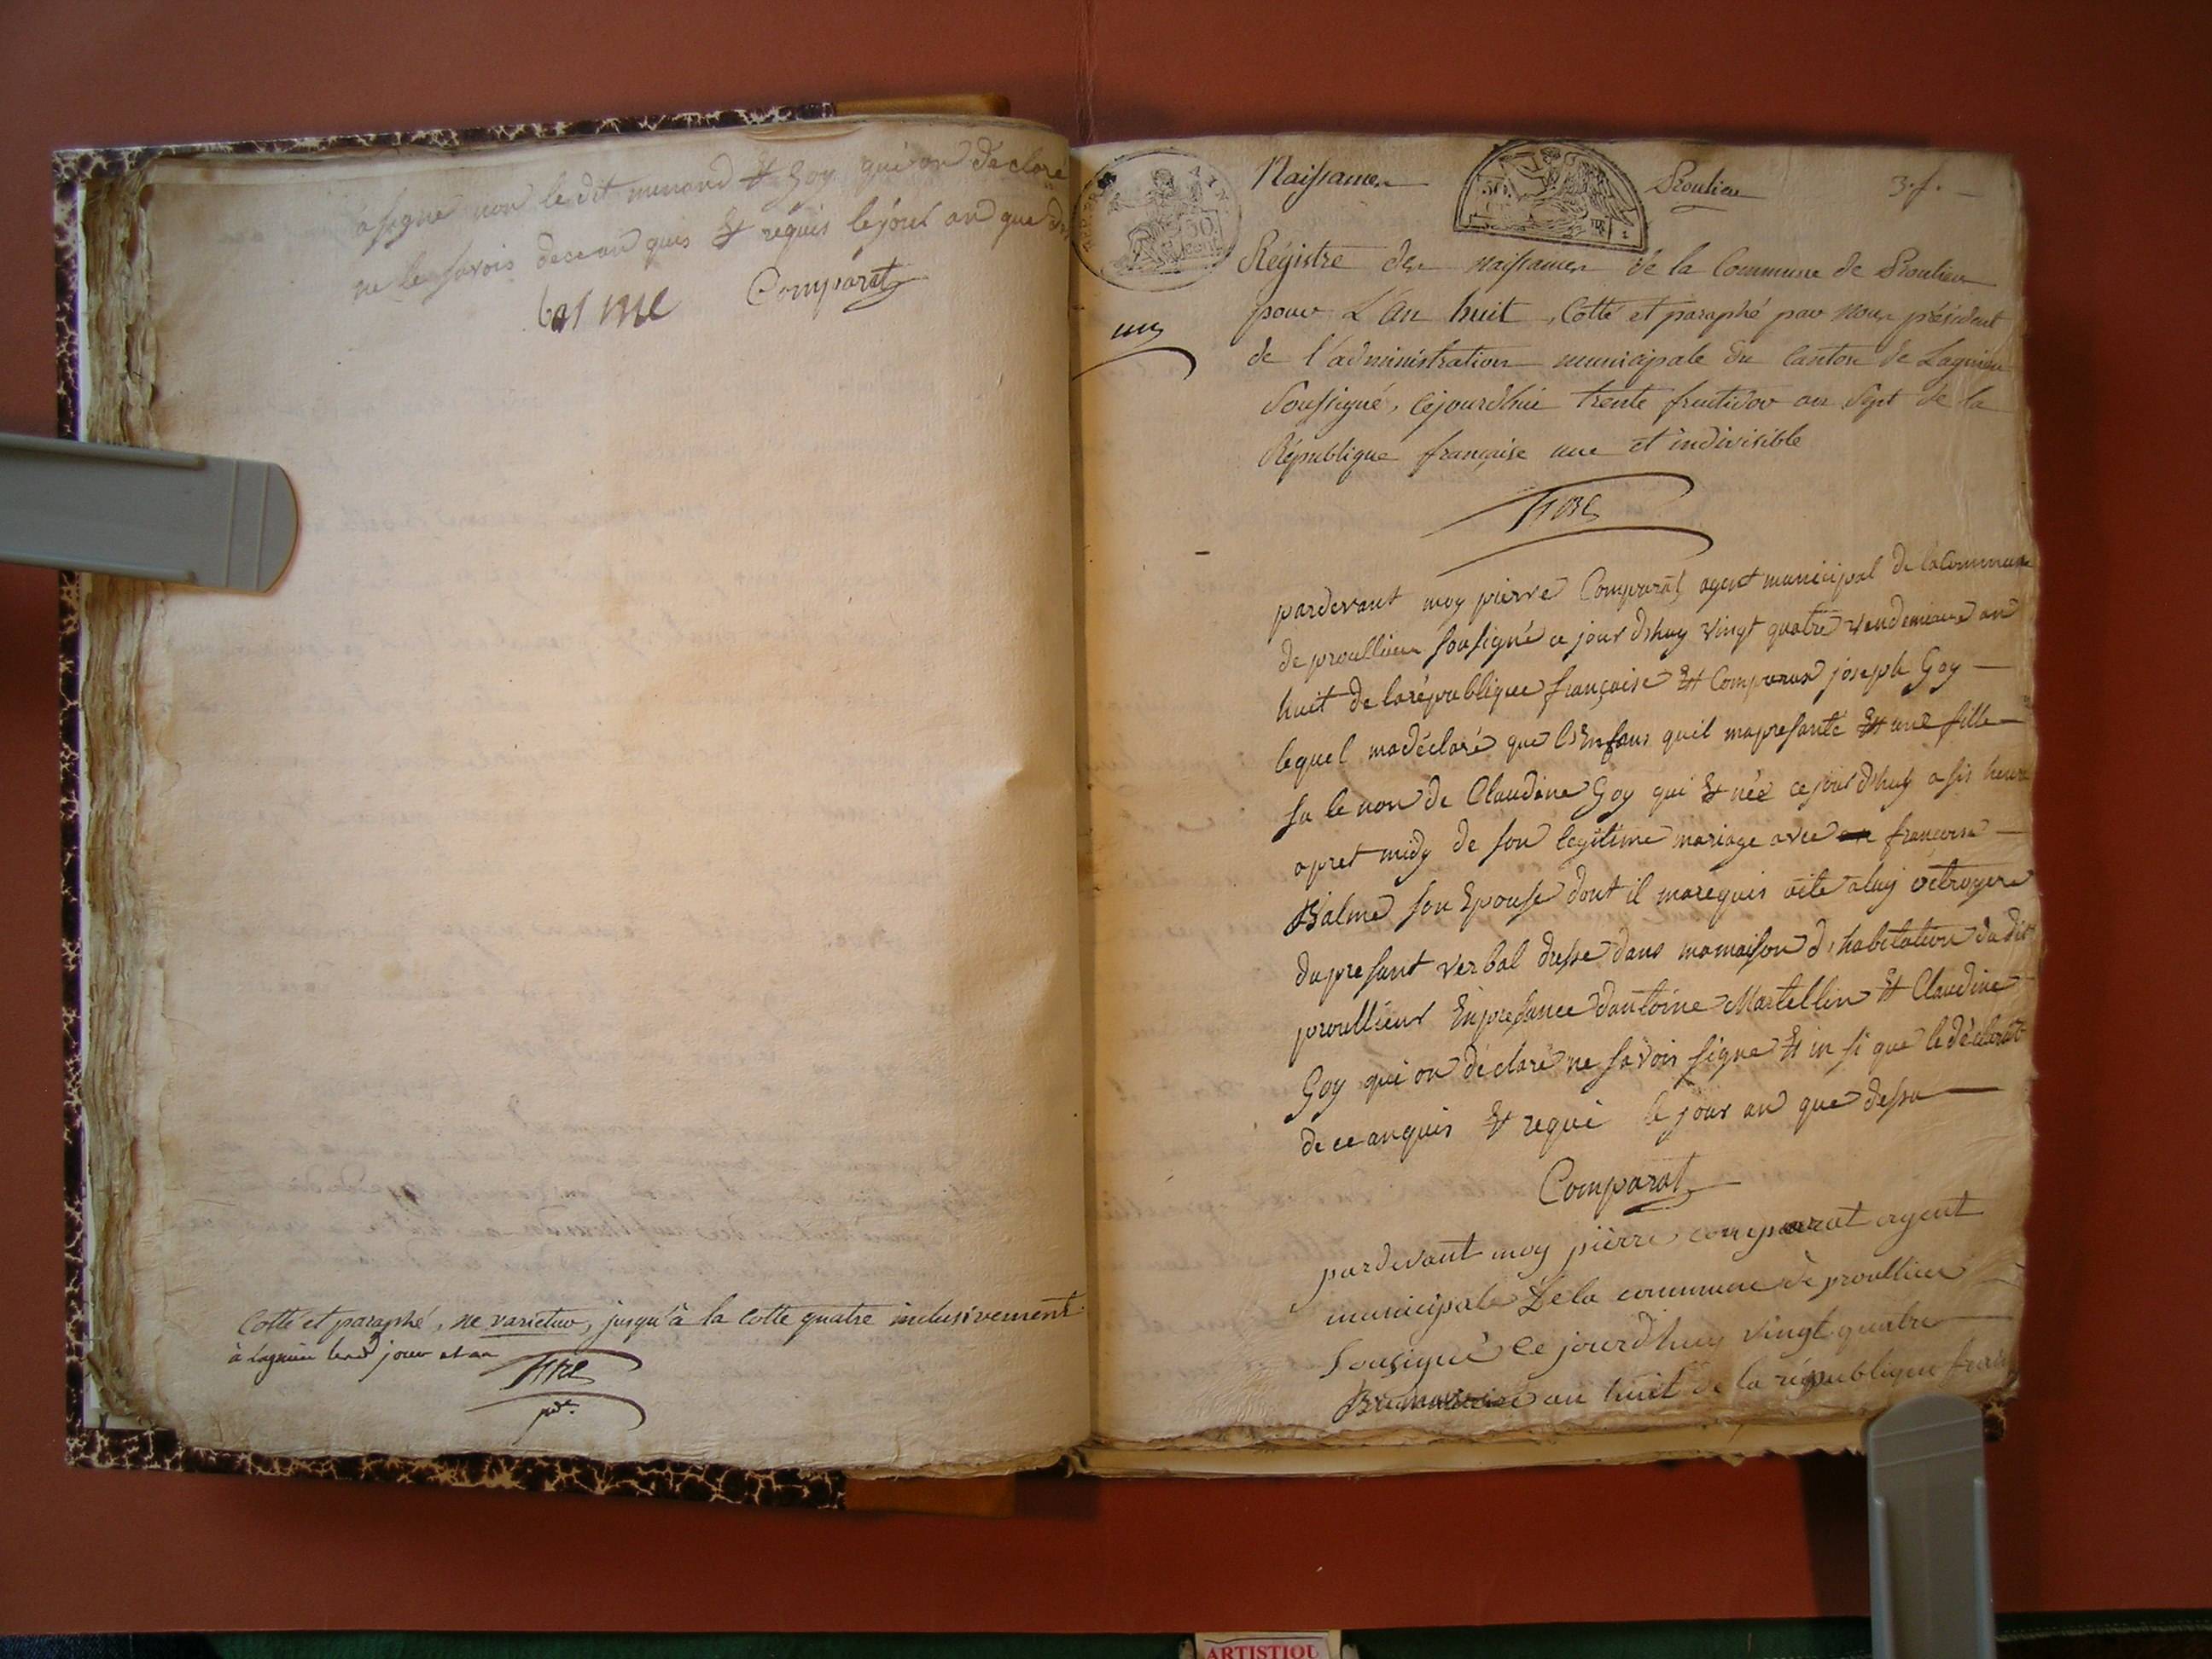 a signé non le dit munand et Goy qui on déclaré
ne le savois de ce an quis et requis le jour an que de
balme Comparat
Cotté et paraphé, ne varietur, jusqu'à la Cotte quatre inclusivement
à Lagnieu led jour et an
pdt.
AIN
50 cent
Naissances Proulieu 3.f.
un
Régistre des naissances de la Commune de Proulieu
pour L'an huit, Cotté et paraphé par Nous président
de l'administration municipale du Canton de Lagnieu
Soussigné, cejourdhui trente fructidor an Sept de la
République française une et indivisible
pardevant moy pierre Comparat agent municipal de la Commune
de proullieu sousigné ce jour dhuy vingt quatre vendemiere an
huit de la république française Et Comparus joseph Goy
lequel ma déclaré que lEnfans quil ma presanté Et une fille
su le non de Claudine Goy qui Et née ce jour dhuy a sis heure
apret midy de son legitime mariage avec françoise
Balme son Epouse dont il ma requis acte a luy octroyere
du presant verbal dresse dans ma maison d'habitation du dit
proullieux En presance dantoine Martellin Et Claudine
Goy qui on déclaré ne savois signe Et in si que le déclarat
de ce anquis Et requi le jour an que dessu
Comparat
pardevant moy pierre comparat agent
municipale De la commune de proullieu
Sousigné ce jourdhuy vingt quatre
Brumaire an huit de la république fran
ARTISTIQU